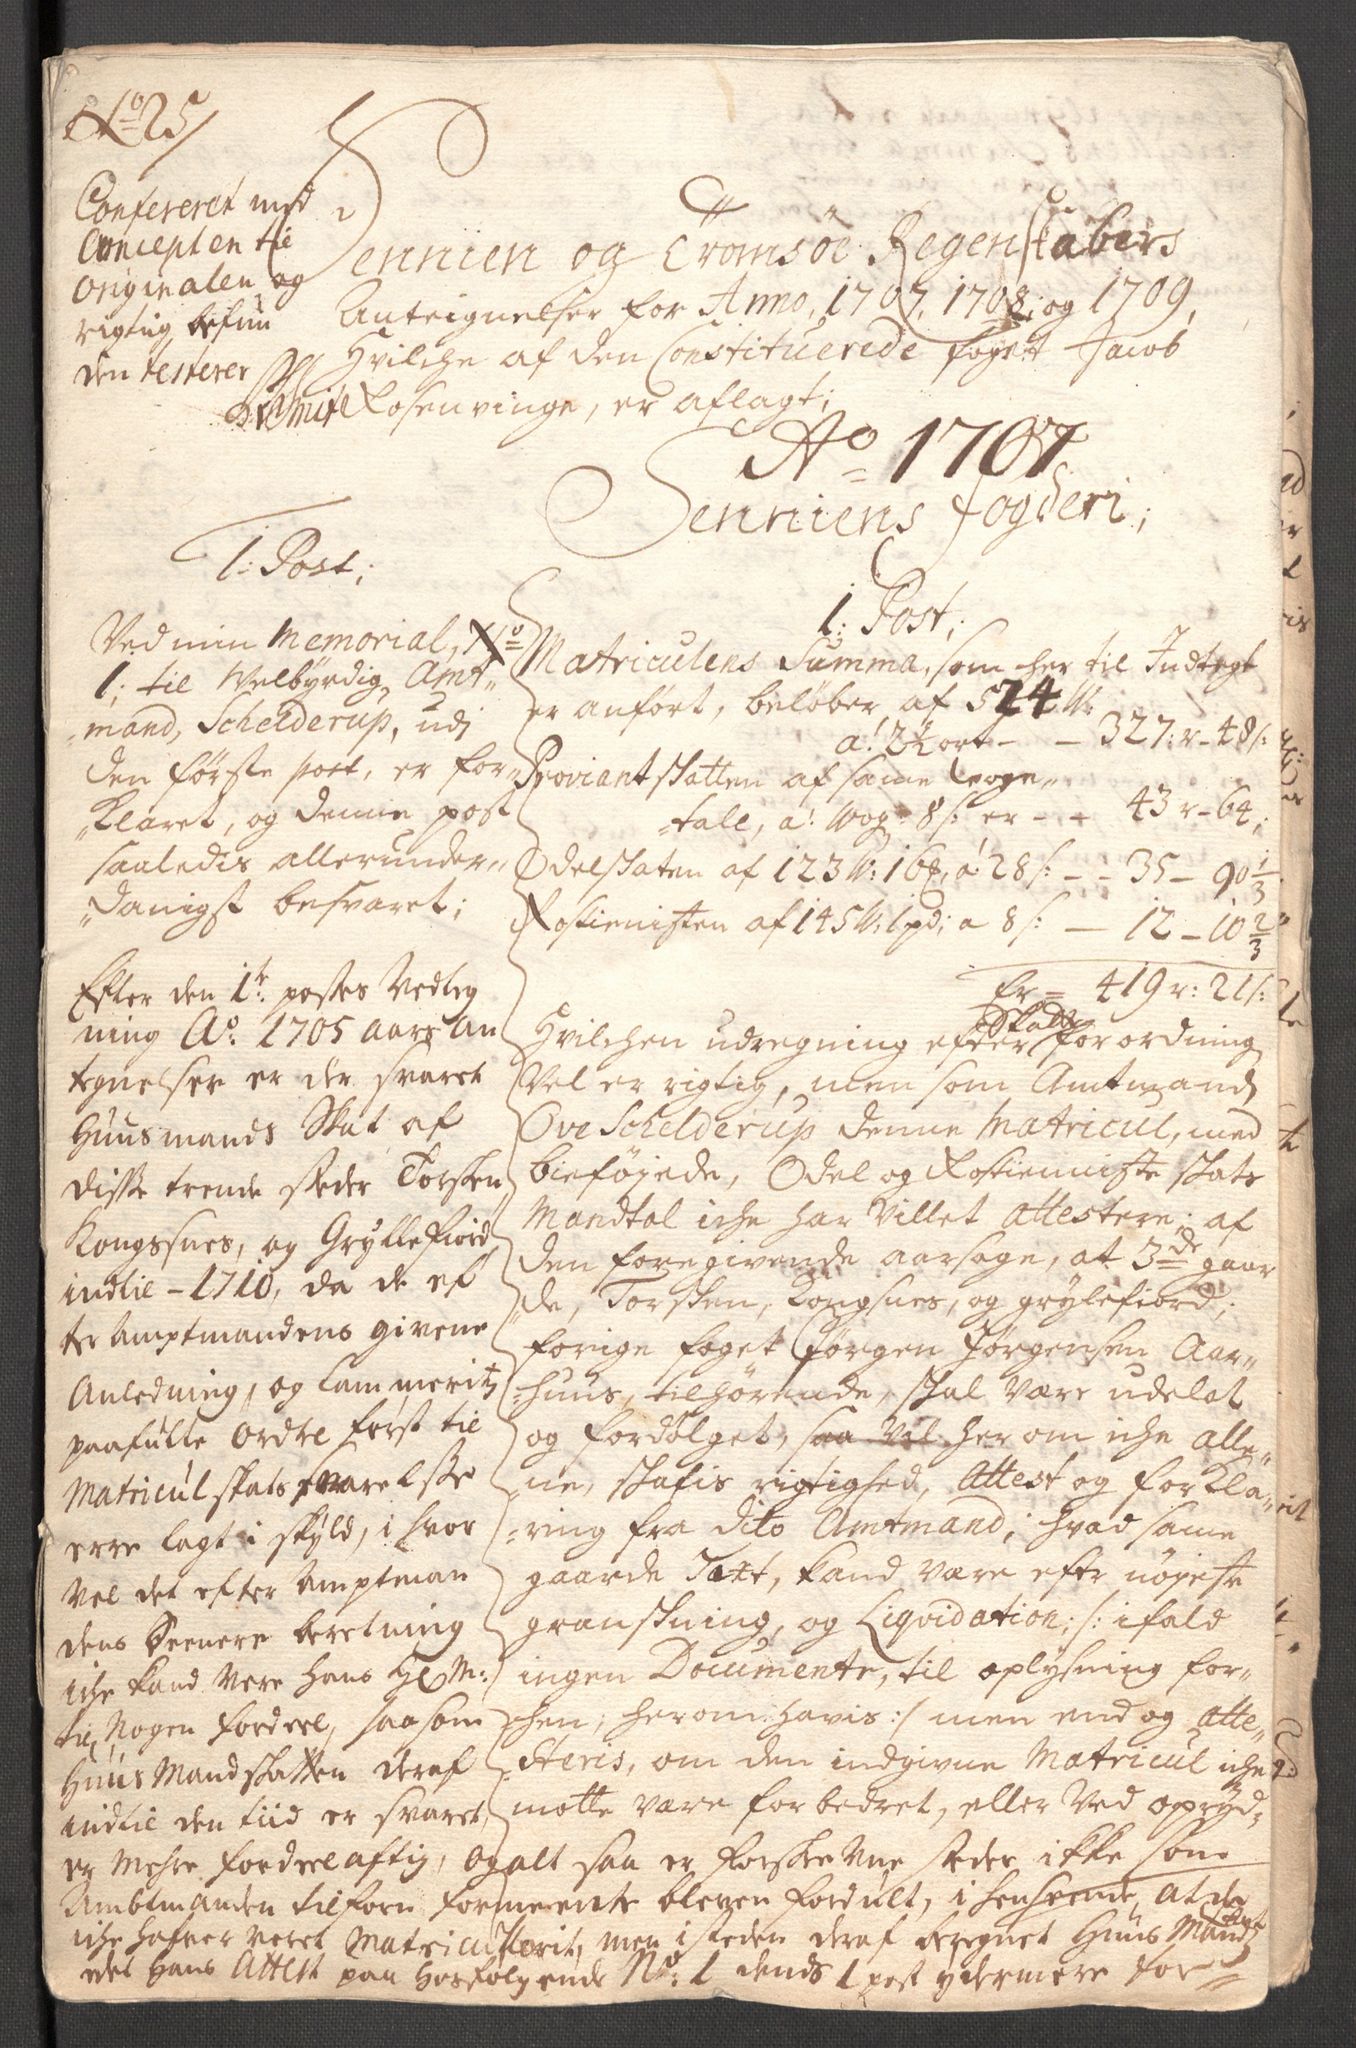 No 25/
Confereret med
Concepten til
Originalen og
rigtig befun
den testerer
Sennien og Tromsøe Regenskabers
Antegnelser for Anno, 1707, 1708; og 1709,
Hvilche af den Constituerede foget Jacob
Rosenvinge, er aflagt;
Ao 1707
Senniens fogderi;
1: Post;
Ved min Memorial, No
1; til Welbyrdig Amt-
mand, Schelderup, udi
den første post, er for-
klaret, og denne post
saaledis allerunder-
danigst besvaret;
Efter den 1te postes Vedteg
ning Ao: 1705 aars An
tegnelser er der svaret
Huusmands Skat af
disse trende steder Torsken
Kongssnes, og Gryllefiord
indtil - 1710, da de ef
ter Amptmandens givene
Anledning, og Cammeritz
paafulte ordre først til
Matricul skats svarelsse
erre lagt i skyld, i hvor
vel det efter Amptman
dens Seenere beretning
iche kand vere hans Kl M:
til Nogen fordeel, saasom
Huus Mandskatten deraf
indtil den tiid er svaret,
1: Post;
Matriculens Summa, som her til Indtegt
er anført, beløber af 524 W:
a! 2½ ort - - 327: r - 48 s:
Proviant skatten af same woge-
tall, a! Wog: 8 s: er - - 43 r - 64;
Odelskaten af 123 W: 16 , á: 28 s: - - 35 - 90 1/3
Rostienisten af 145 W: 1 pd; a 8 s: - 12 - 10 2/3
Er - 419 r: 21 s:
Hvilchen udregning efter Skatte forordning
Vel er rigtig, men som Amtmand
Ove Schelderup denne Matricul, med
bieføjede, Odel og Rostienniste skats
Mandtal iche har villet attestere; af
den foregivende aarsage, at 3de gaar
de, Torsken, Kongsnes, og grylefiord;
forige foget Jørgen Jørgensen Aar-
huus, tilhørende, skal være udelat
og fordølget, saa Vel herom iche alle-
ne, skafis rigtighed, Attest og forKla-
ring fra dito Amtmand; hvad same
gaarde Taxt, kand være efter nøjeste
granskning, og Liqvidation; /: ifald
ingen Documenter, til oplysning for-
chen; herom havis :/ men end og atte-
steris, om den indgivne Matricul iche
motte være forbedret, eller ved opryd-
er Mehre fordeelaftig, Og alt saa er forskrevne steder ikke som
Ambtmanden tilforn formeente bleven fordult, i henseende, at de
iche hafver veret Matriculerit, men i steden deraf beregnet Huus Mands skat
 Hans Attest paa hosfølgende No: 1 dends 1 post ydermere for-